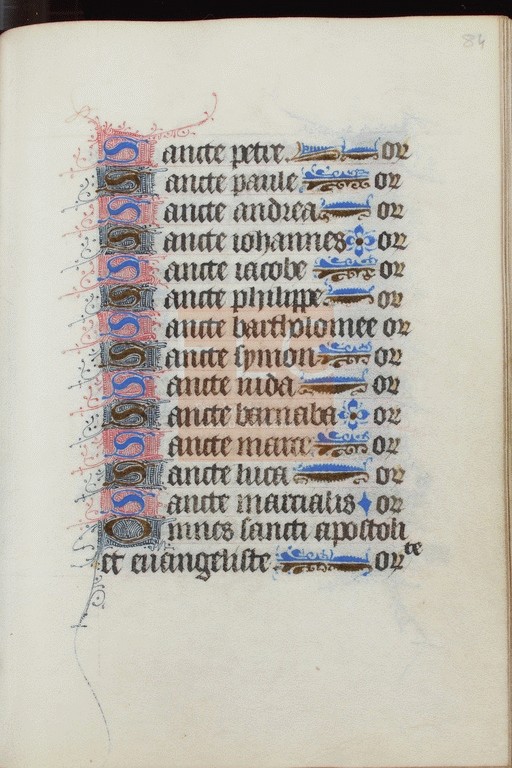 84
Sancte petre or
Sancte paule or
Sancte andrea or
Sancte iohannes or
Sancte iacobe or
Sancte philippe or
Sancte bartholomee or
Sancte symon or
Sancte iuda or
Sancte barnaba or
Sancte marce or
Sancte luca or
Sancte martialis or
Omnes sancti apostoli
et euangeliste orte